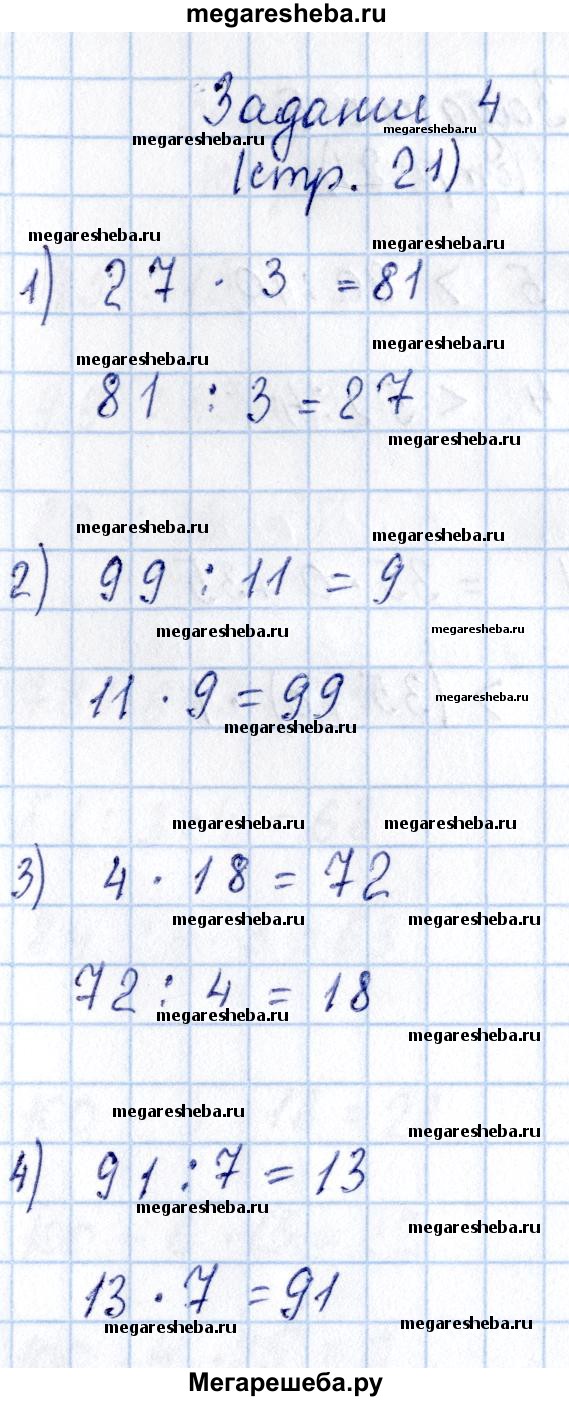 megaresheba.ru
Задание 4
megaresheba.ru megaresheba.ru
(стр. 21)
megaresheba.ru megaresheba.ru
1) 27 · 3 = 81
megaresheba.ru megaresheba.ru
81 : 3 = 27
megaresheba.ru
megaresheba.ru megaresheba.ru
2) 99 : 11 = 9
megaresheba.ru megaresheba.ru
11 · 9 = 99 megaresheba.ru
megaresheba.ru
megaresheba.ru megaresheba.ru
3) 4 · 18 = 72
megaresheba.ru megaresheba.ru
72 : 4 = 18
megaresheba.ru megaresheba.ru
megaresheba.ru megaresheba.ru
4) 91 : 7 = 13
megaresheba.ru megaresheba.ru
13 · 7 = 91
megaresheba.ru megaresheba.ru
Мегарешеба.ру